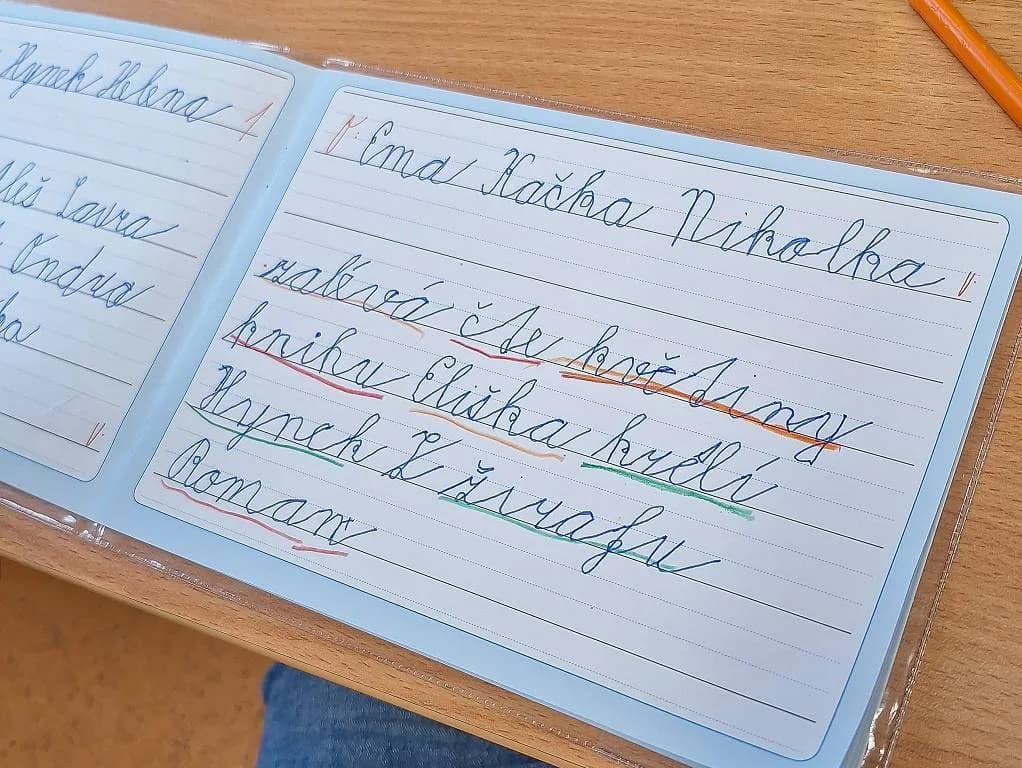 Hynek Helena
Aleš Lavra
Ondra
ka
Ema Kačka Nikolka
zalévá čte květiny
knihu Eliška kreslí
Hynek Z žirafu
Roman